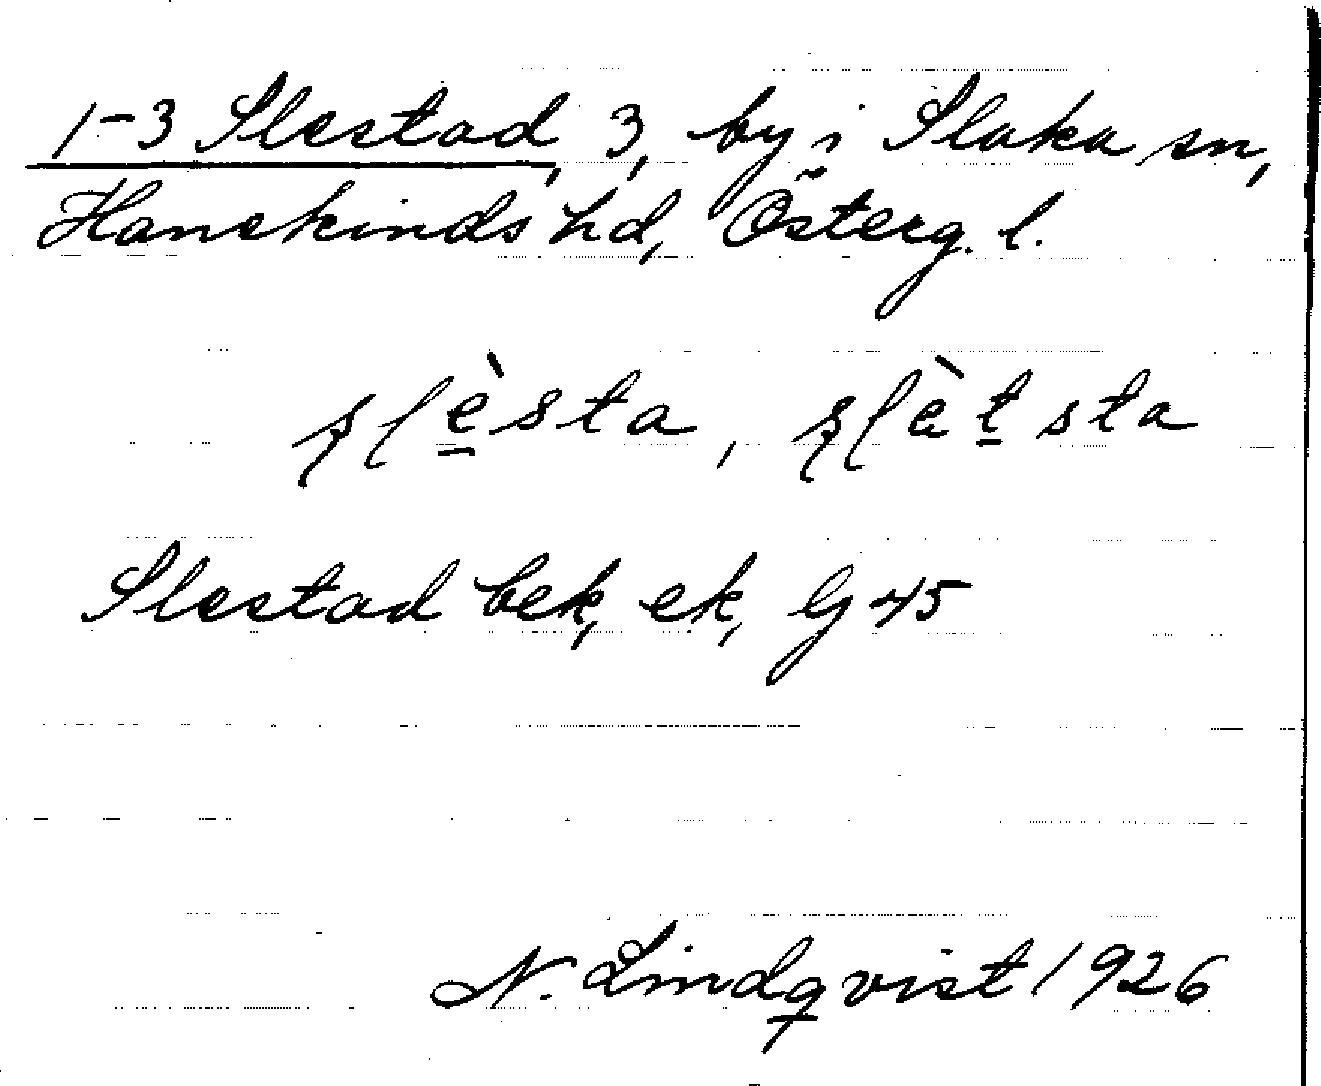 1-3 Slestad, 3, by i Slaka sn,
Hanekinds hd, Österg. l.
slèsta, slètsta
Slestad bek, ek, G 45
N. Lindqvist 1926